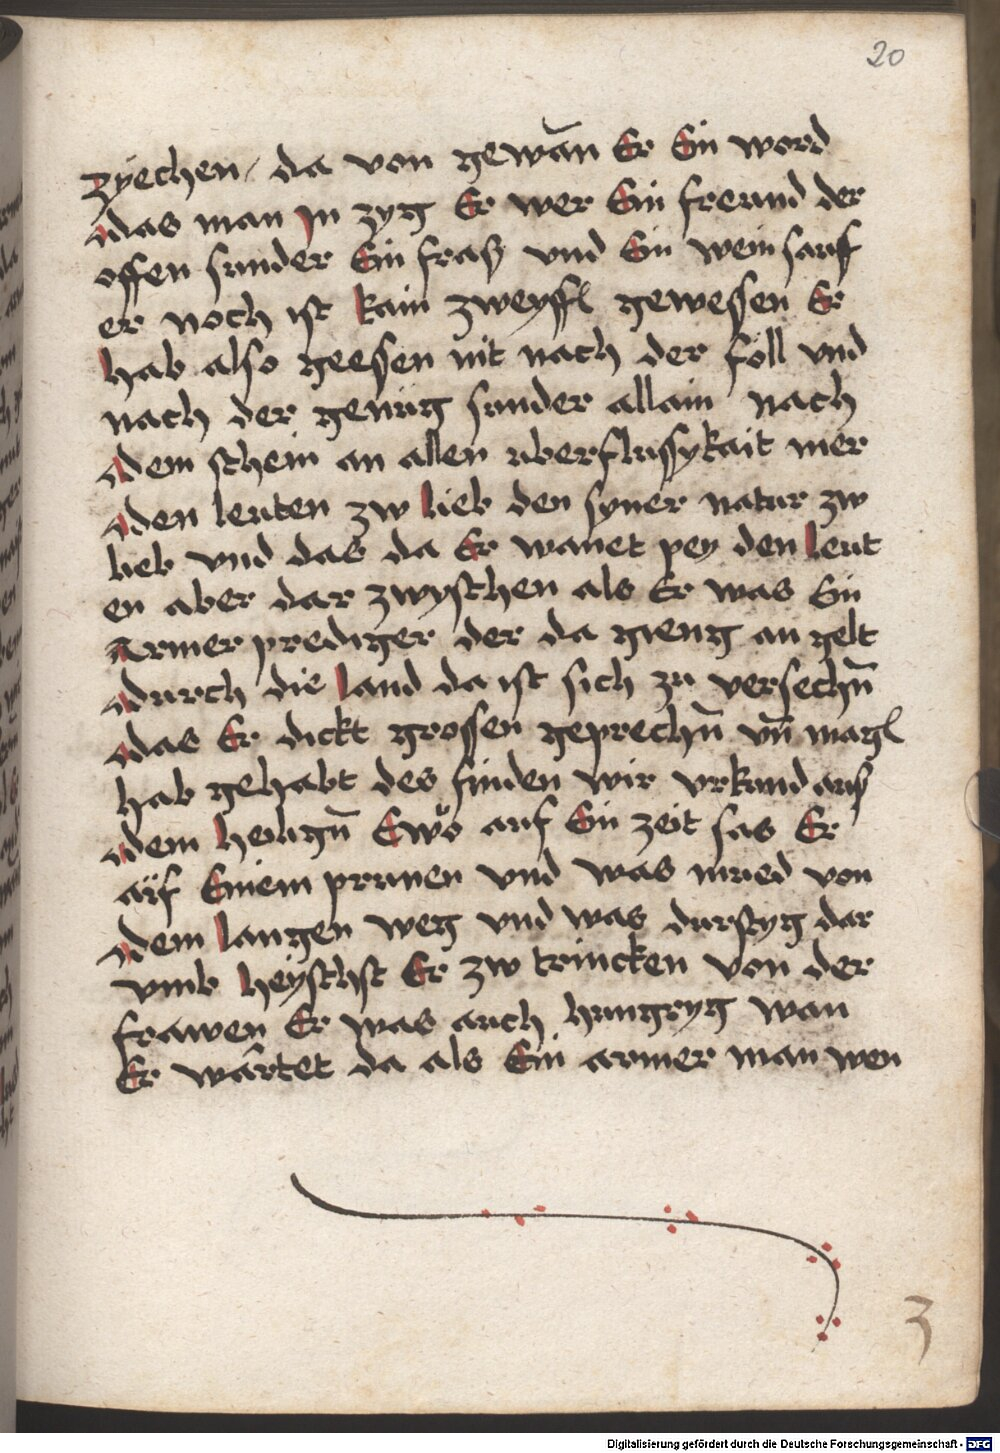 20
zyechen / da von gewān Er Ein word
das man jn zyg Er wer Ein freund der
offen sunder Ein fraß vnd Ein wein sauf
er noch ist kain zweyffl gewessen Er
hab also geessen nit nach der föll vnd
nach der genüg sunder allain nach
dem schein an allen uberflussykait mer
den leuten zw lieb den syner natur zw
lieb vnd das da Er wanet pey den leut
en aber dar zwyschen als Er was Ein
Armer prediger der da gieng an gelt
durch die land da ist sich zu versechn̄
das Er dickt grossen geprechn̄ vn̄ magl
hab gehabt des finden wir vrkund aus
dem heilign̄ Ewo auf Ein zeit sas Er
auf Einem prunen vnd was mued von
dem langen weg vnd was durstyg dar
vmb heyschst Er zw trincken von der
frawen Er was auch hungryg wan
Er wartet da als Ein armer man wen
3
Digitalisierung gefördert durch die Deutsche Forschungsgemeinschaft - DFG